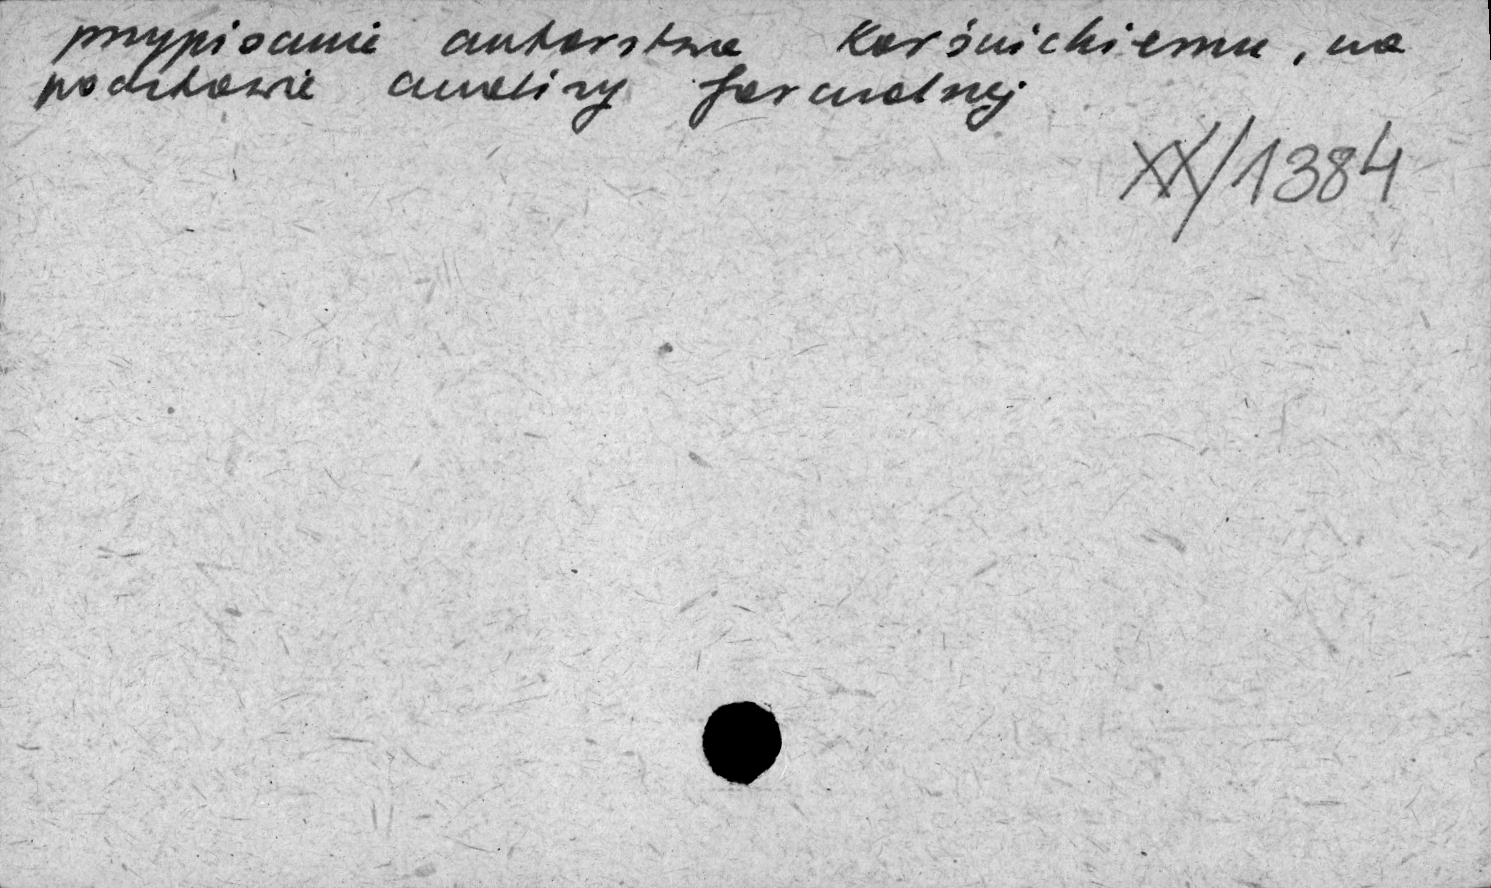 przypisanie autorstwa Karśnickiemu, na
podstawie analizy formalnej
XX/1384